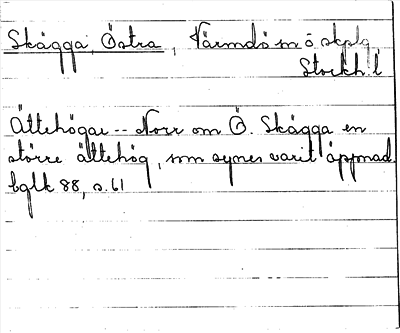 Skägga, Östra, Värmdö sn ö skplg
Stockh. l
Ättehögar -- Norr om Ö. Skägga en
större ättehög, som synes varit öppnad.
bglk 88, s. 61